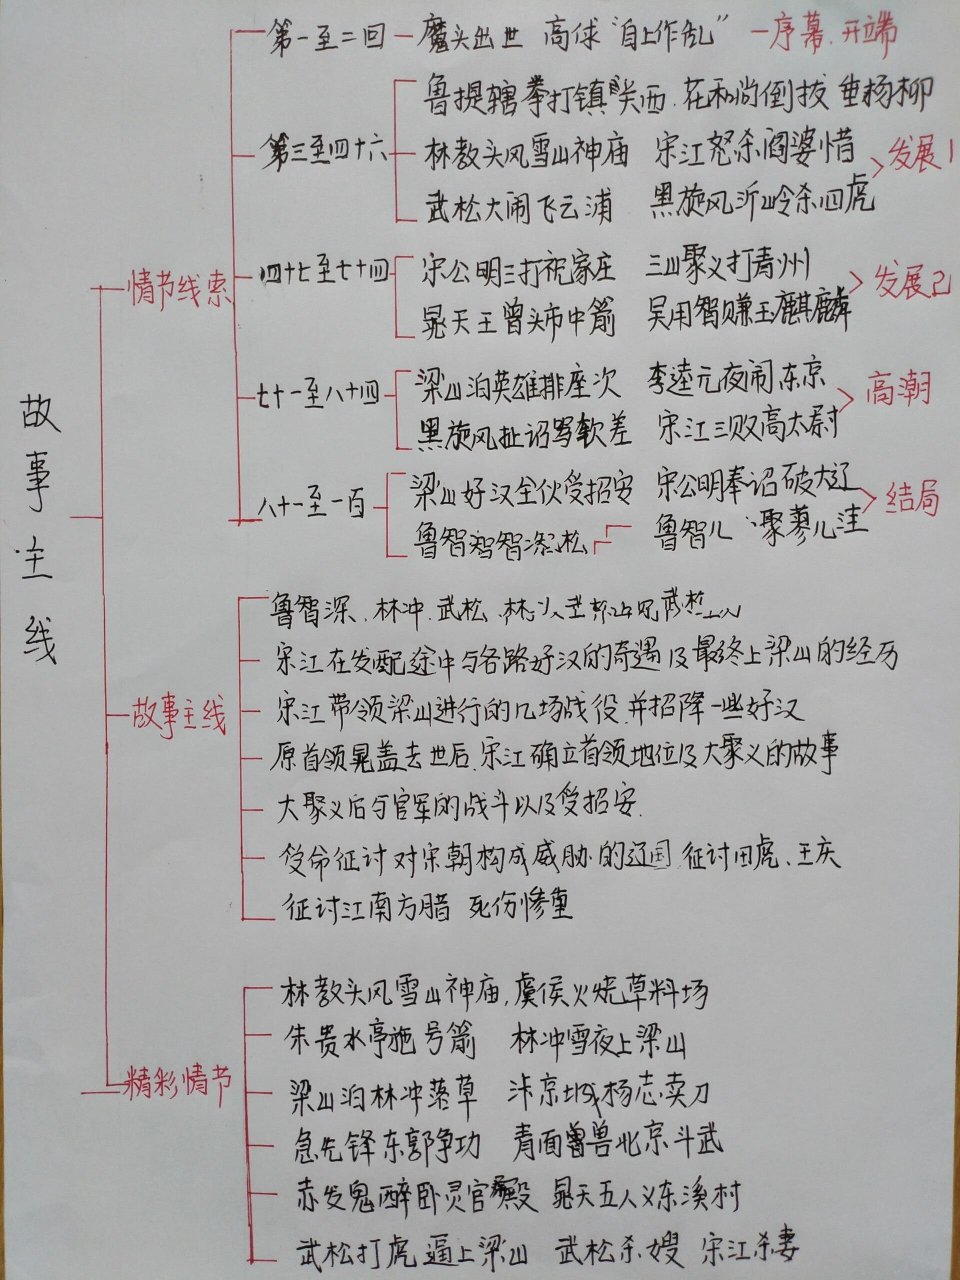 故事主线
情节线索
第一至二回 魔头出世 高俅"自上作乱" 序幕.开端
第三至四十六
鲁提辖拳打镇关西.花和尚倒拔垂杨柳
林教头风雪山神庙 宋江怒杀阎婆惜
武松大闹飞云浦 黑旋风沂岭杀四虎
发展1
四十七至七十四
宋公明三打祝家庄 三山聚义打青州
晁天王曾头市中箭 吴用智赚玉麒麟
发展2
七十一至八十四
梁山泊英雄排座次 李逵元夜闹东京
黑旋风扯诏骂钦差 宋江三败高太尉
高潮
八十一至一百
梁山好汉全伙受招安 宋公明奉诏破大辽
鲁智 松 鲁智 聚蓼儿洼
结局
故事主线
鲁智深.林冲.武松.林 武松
宋江在发配途中与各路好汉的奇遇及最终上梁山的经历
宋江带领梁山进行的几场战役.并招降一些好汉
原首领晁盖去世后.宋江确立首领地位及大聚义的故事
大聚义后与官军的战斗以及受招安.
受命征讨对宋朝构成威胁的辽国.征讨田虎、王庆
征讨江南方腊 死伤惨重
精彩情节
林教头风雪山神庙,虞侯火烧草料场
朱贵水亭施号箭 林冲雪夜上梁山
梁山泊林冲落草 汴京城杨志卖刀
急先锋东郭争功 青面兽北京斗武
赤发鬼醉卧灵官殿 晁天五人义东溪村
武松打虎 逼上梁山 武松杀嫂 宋江杀妻